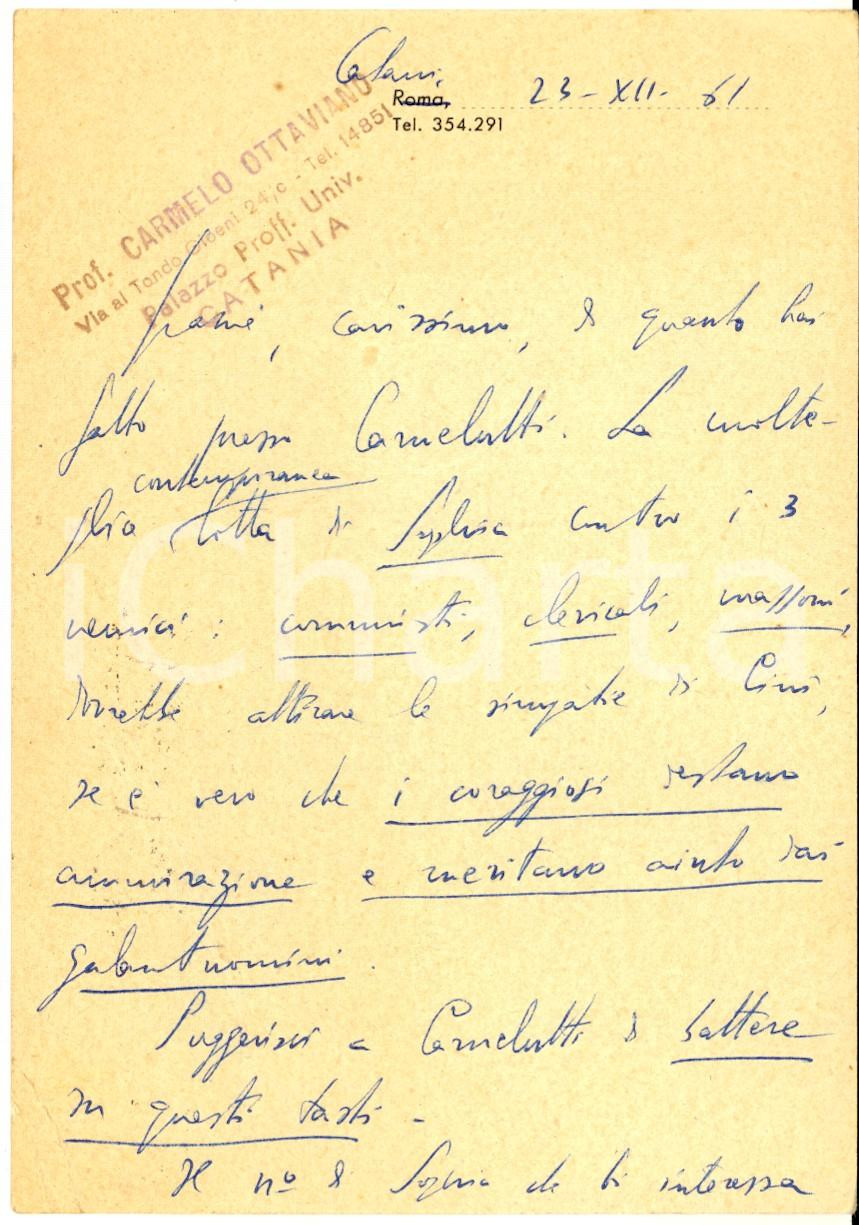 Catania,
Roma, 23-XII-61
Tel. 354.291
Prof. CARMELO OTTAVIANO
Via al Tondo Gioeni 24/c - Tel. 14851
Palazzo Proff. Univ.
CATANIA
Grazie, carissimo, di quanto hai
fatto presso Carnelutti. La molte-
contemporanea
plice lotta di Sophia contro i 3
nemici: comunisti, clericali, massoni,
dovrebbe attirare le simpatie di Cini,
se è vero che i coraggiosi destano
ammirazione e meritano aiuto dai
galantuomini.
Suggerisci a Carnelutti di battere
su questi tasti.
Il nº di Sophia che ti interessa
iCharta